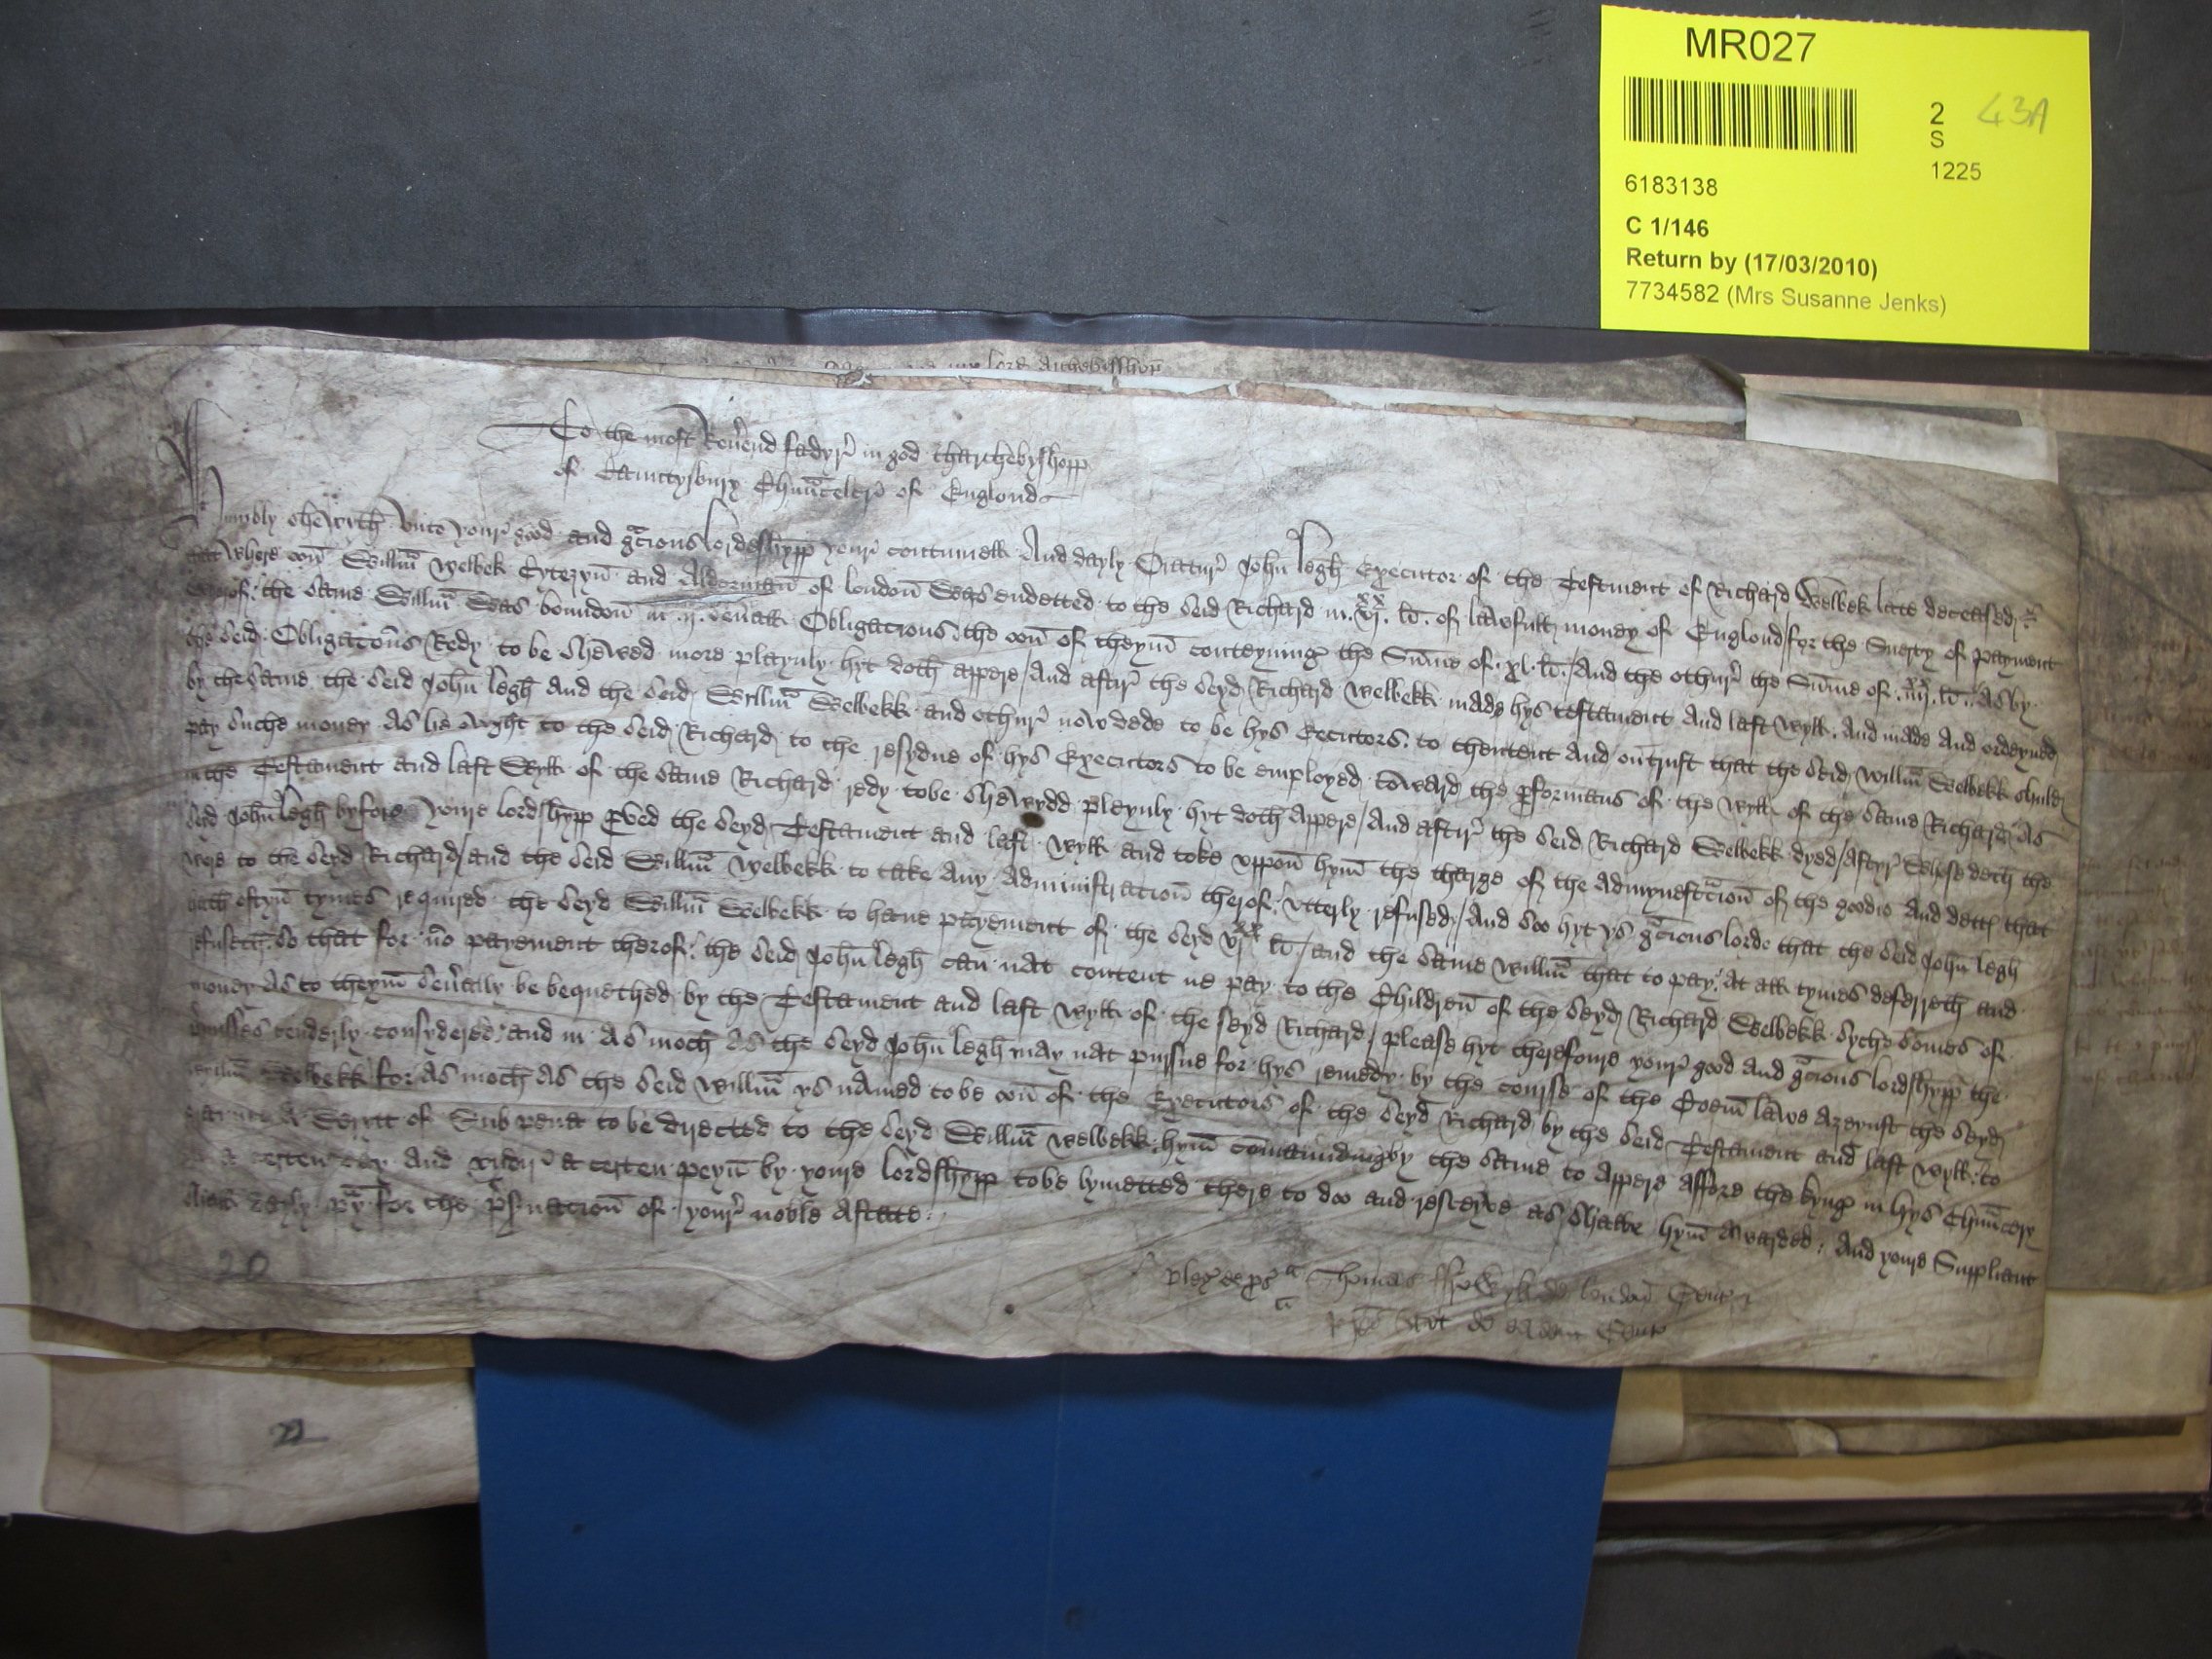 MR027
2 43A
S
1225
6183138
C 1/146
Return by (17/03/2010)
7734582 (Mrs Susanne Jenks)
my lord Archebisshop
To the most Reuend fadyr in god tharchebyshopp
of Cauntyrbury Chaunceler of Englond
Humbly shewyth vnto your good and gracious lordeshypp your contynuell And dayly Oratur John legh Executor of the Testment of Richard Welbek late decessed
that where oon Willm Welbek Cytezyn and Alderman of london Was endetted to the seid Richard in vj xx li. of lawfull money of Englond / for the Suerty of payment
wherof the same Willm Was boundon in ij. seuall Obligacions the oon of theym conteynyng the Sume of xl. li. / And the othur the Sume of iiij xx li. As by
the seid Obligacons Redy to be shewed more playnly hyt doth appere / And aftir the seyd Richard Welbekk made hys testament And last Wyll. And made And ordeyned
by the same the seid John legh And the seid Willm Welbekk and othur now dede to be hys Executors. to thentent And on trust that the seid Willm Welbekk shuld
pay suche money As he owght to the seid Richard to the resydue of hys Executors to be employed toward the pformans of the Wyll of the same Richard As
in the Testament and last Wyll of the same Richard redy tobe shewydd pleynly hyt doth Appere / And aftir the seid Richard Welbekk dyed / Aftyr Whose deth the
seid John legh byfore youre lordshypp pued the seyd Testament and last Wyll and toke vppon hym the charge of the Admynestracion of the goodis And dettes that
were to the seyd Richard / and the seid Willm Welbekk to take Any Administracion therof vtterly refused / And soo hyt ys gracious lorde that the seid John legh
hath oftyn tymes required the seyd Willm Welbekk to haue payement of the seyd vj xx li / and the same Willm that to pay At all tymes deferreth and
refuseth so that for no payement therof the seid John legh can nat content ne pay to the Children of the seyd Richard Welbekk syche somes of
money As to theym seually be bequethed by the Testament and last Wyll of the seyd Richard / please hyt therefoure your good and gracious lordshypp the
pmisses tenderly consydered and in As moch As the seyd John legh may nat pursue for hys remedy by the course of the Coem lawe Ageynst the seyd
Willm Welbekk for As moch As the seid Willm ys named to be oon of the Executors of the seyd Richard by the seid Testament and last Wyll to
graunte A Writt of Sub pena to be directed to the seyd Willm Welbekk hym comaundyng by the same to Appere Affore the kyng in hys Chauncery
at A certen day And vndir A certen peyn by youre lordshypp tobe lymetted there to doo and resceyve as shalbe hym Awarded And youre Suppliant
shall dayly pray for the pseruacion of your noble Astate
20
pleg de ps Thomas london Gent
de eadem Gent
22